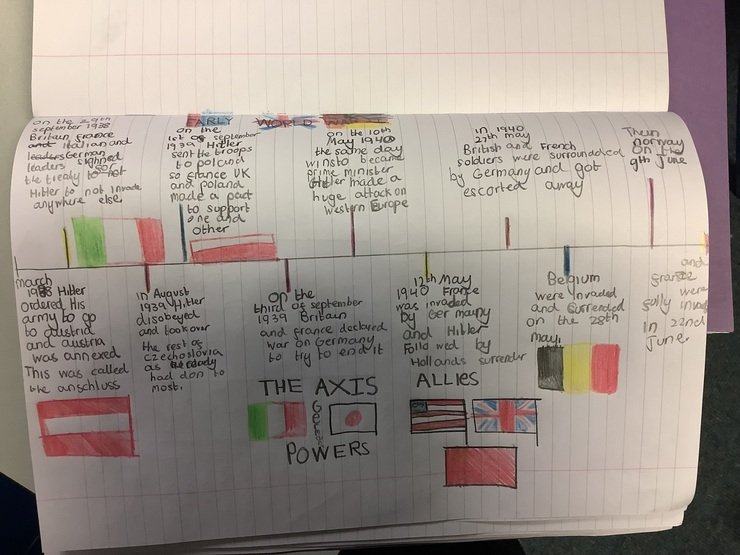 EARLY WORLD WAR
on the 29th
september 1938
Britain France
and italian and
leaders German
leaders sighned
the treaty to not
Hitler to not invade
anywhere else
on the
1st of september
1939 Hitler
sent the troops
to poland
so france UK
and poland
made a pact
to support
one and
other
on the 10th
May 1940
the same day
winsto became
prime minister
Hitler made a
huge attack on
western Europe
in 1940
27th may
British and French
soldiers were surrounded
by Germany and got
escorted away
Then
norway
on the
9th June
march
1938 Hitler
ordered His
army to go
to austria
and austria
was annexed
This was called
the anschluss
in August
1939 Hitler
disobeyed
and took over
the rest of
czechoslovia
as
had don to
most.
on the
third of september
1939 Britain
and france declared
war on Germany
to try to end it
12th May
1940 France
was invaded
by Germany
and Hitler
followed by
Hollands surrender
Belgium
were invaded
and surrended
on the 28th
may.
and
france
were
fully
in 22nd
June.
THE AXIS
German
POWERS
ALLIES